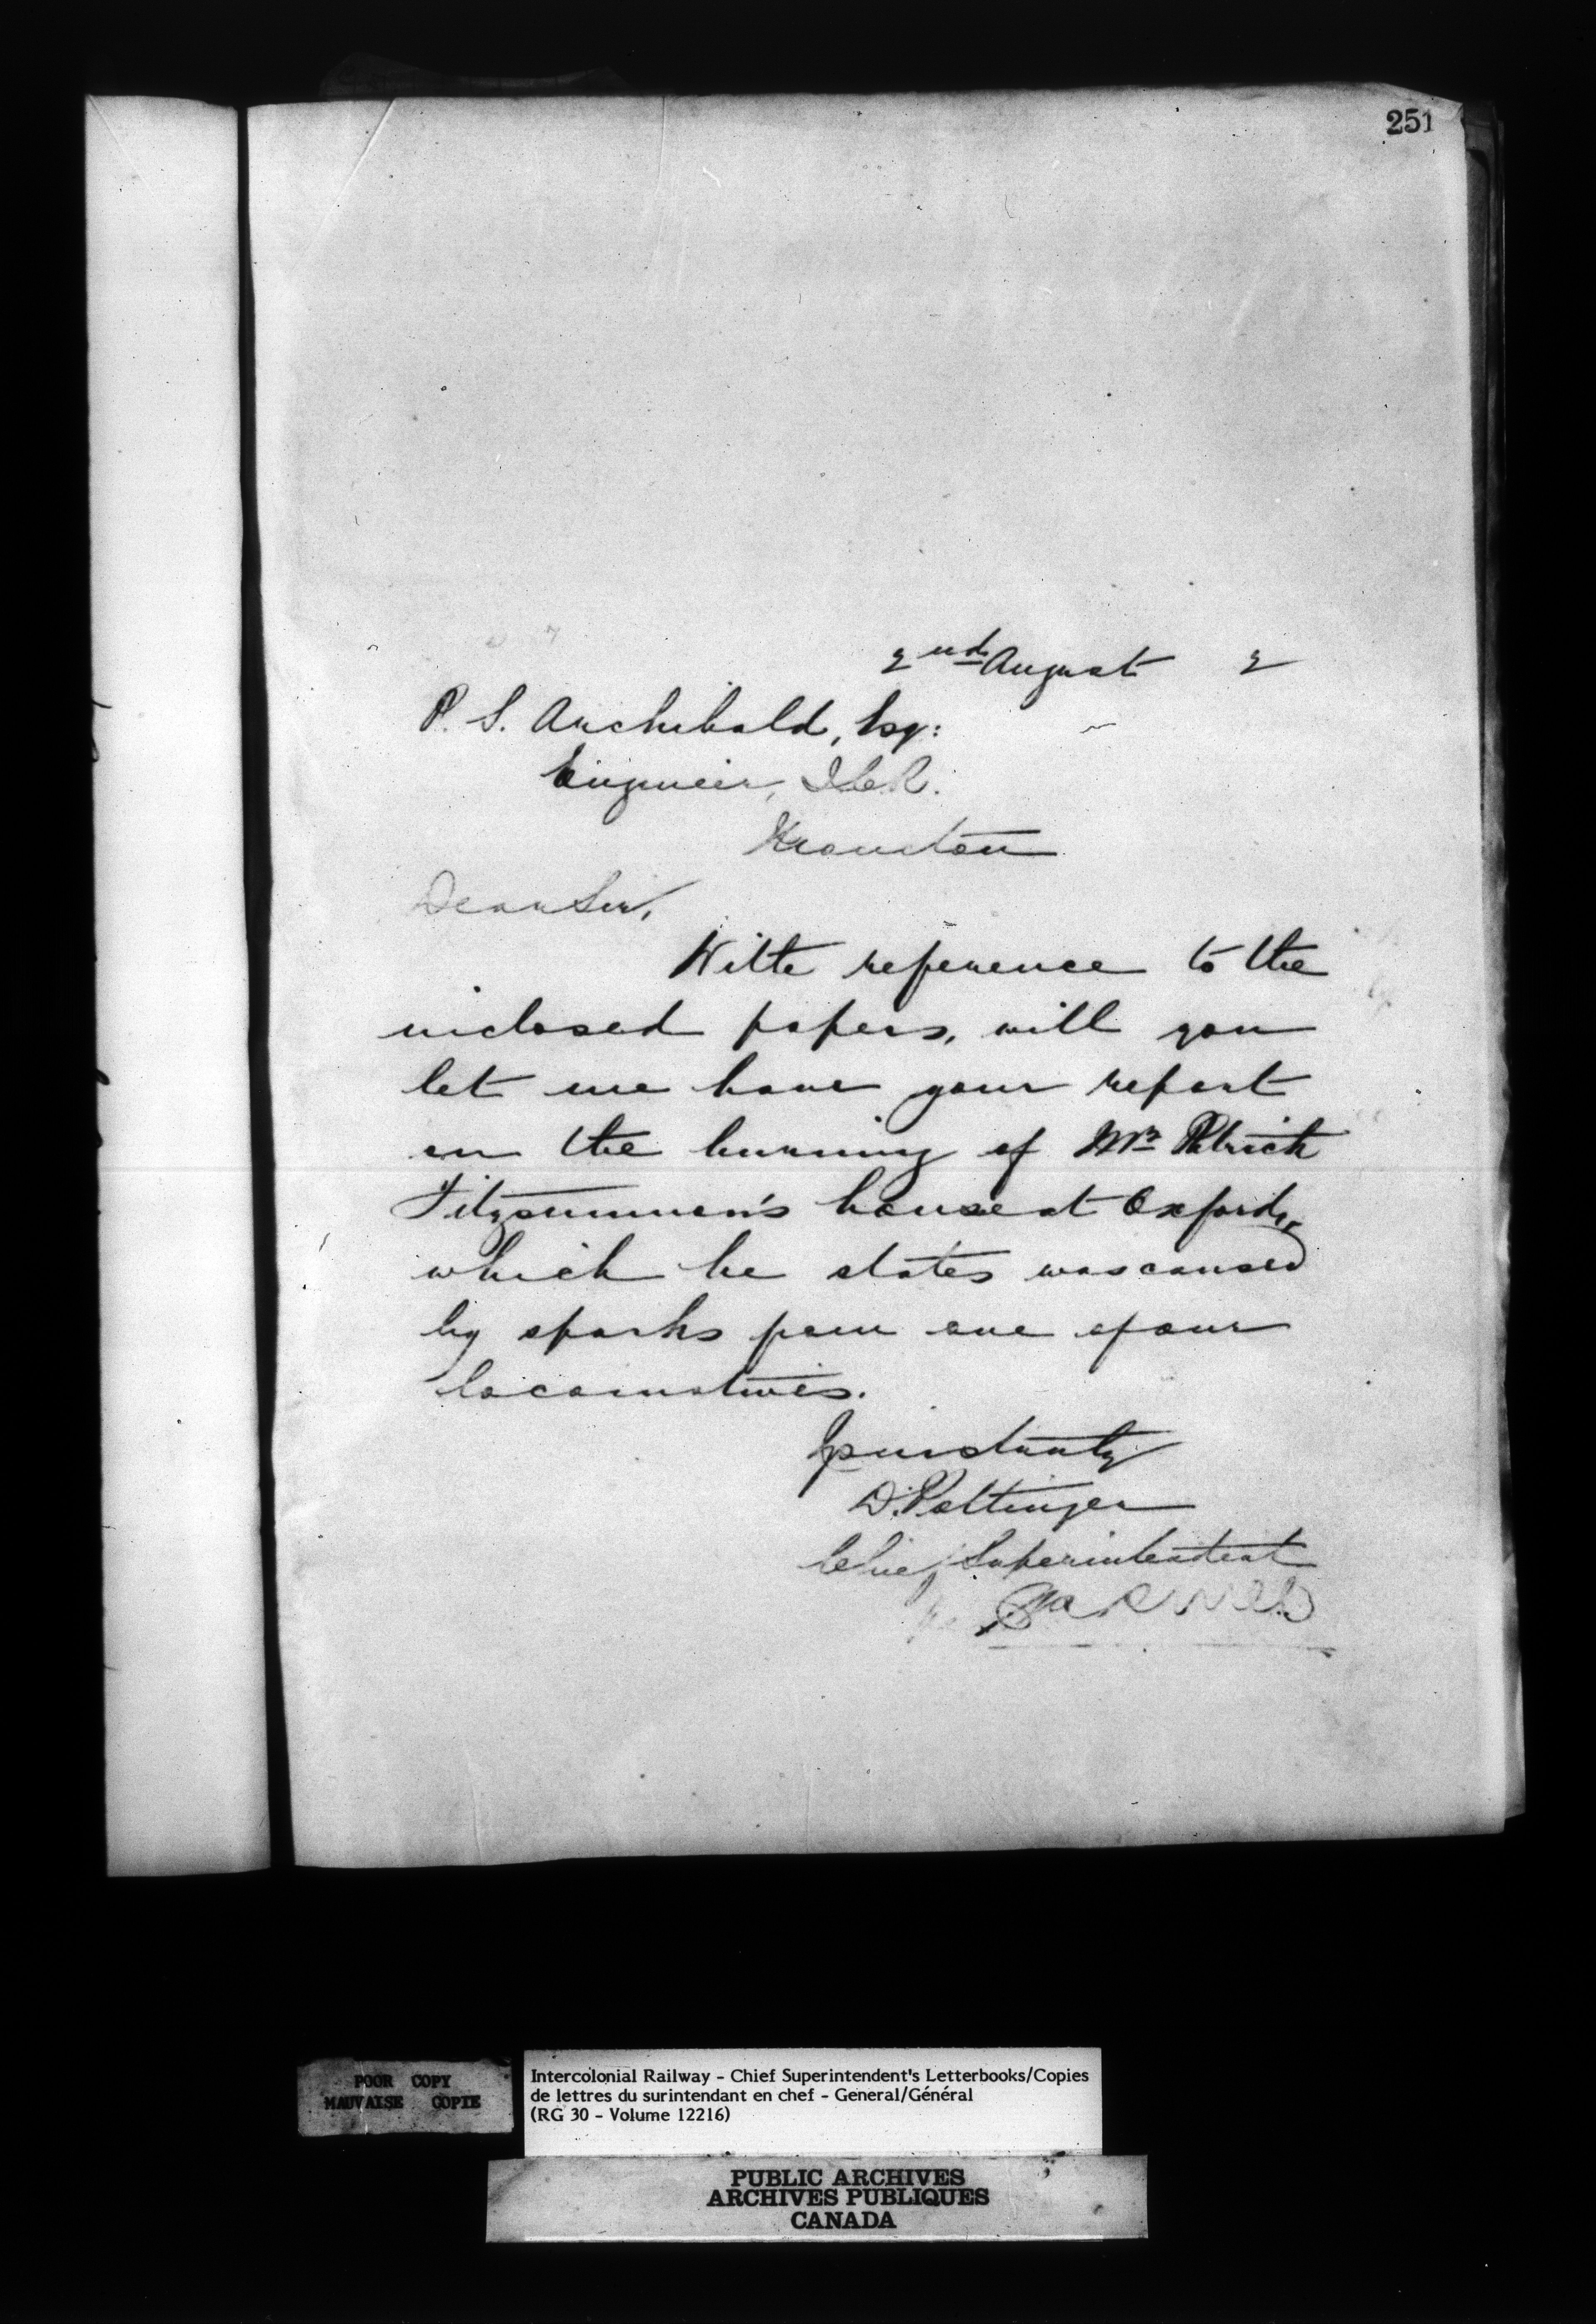 251
2nd August 2
P. S. Archibald, Esq:
Engineer, I.C.R.
Moncton
Dear Sir,
With reference to the
inclosed papers, will you
let me have your report
on the burning of Mr Patrick
Fitzsimmon's house at Oxford,
which he states was caused
by sparks from one of our
locomotives.
Yours truly
D. Pottinger
Chief Superintendent
POOR COPY
MAUVAISE COPIE
Intercolonial Railway – Chief Superintendent's Letterbooks/Copies
de lettres du surintendant en chef – General/Général
(RG 30 – Volume 12216)
PUBLIC ARCHIVES
ARCHIVES PUBLIQUES
CANADA